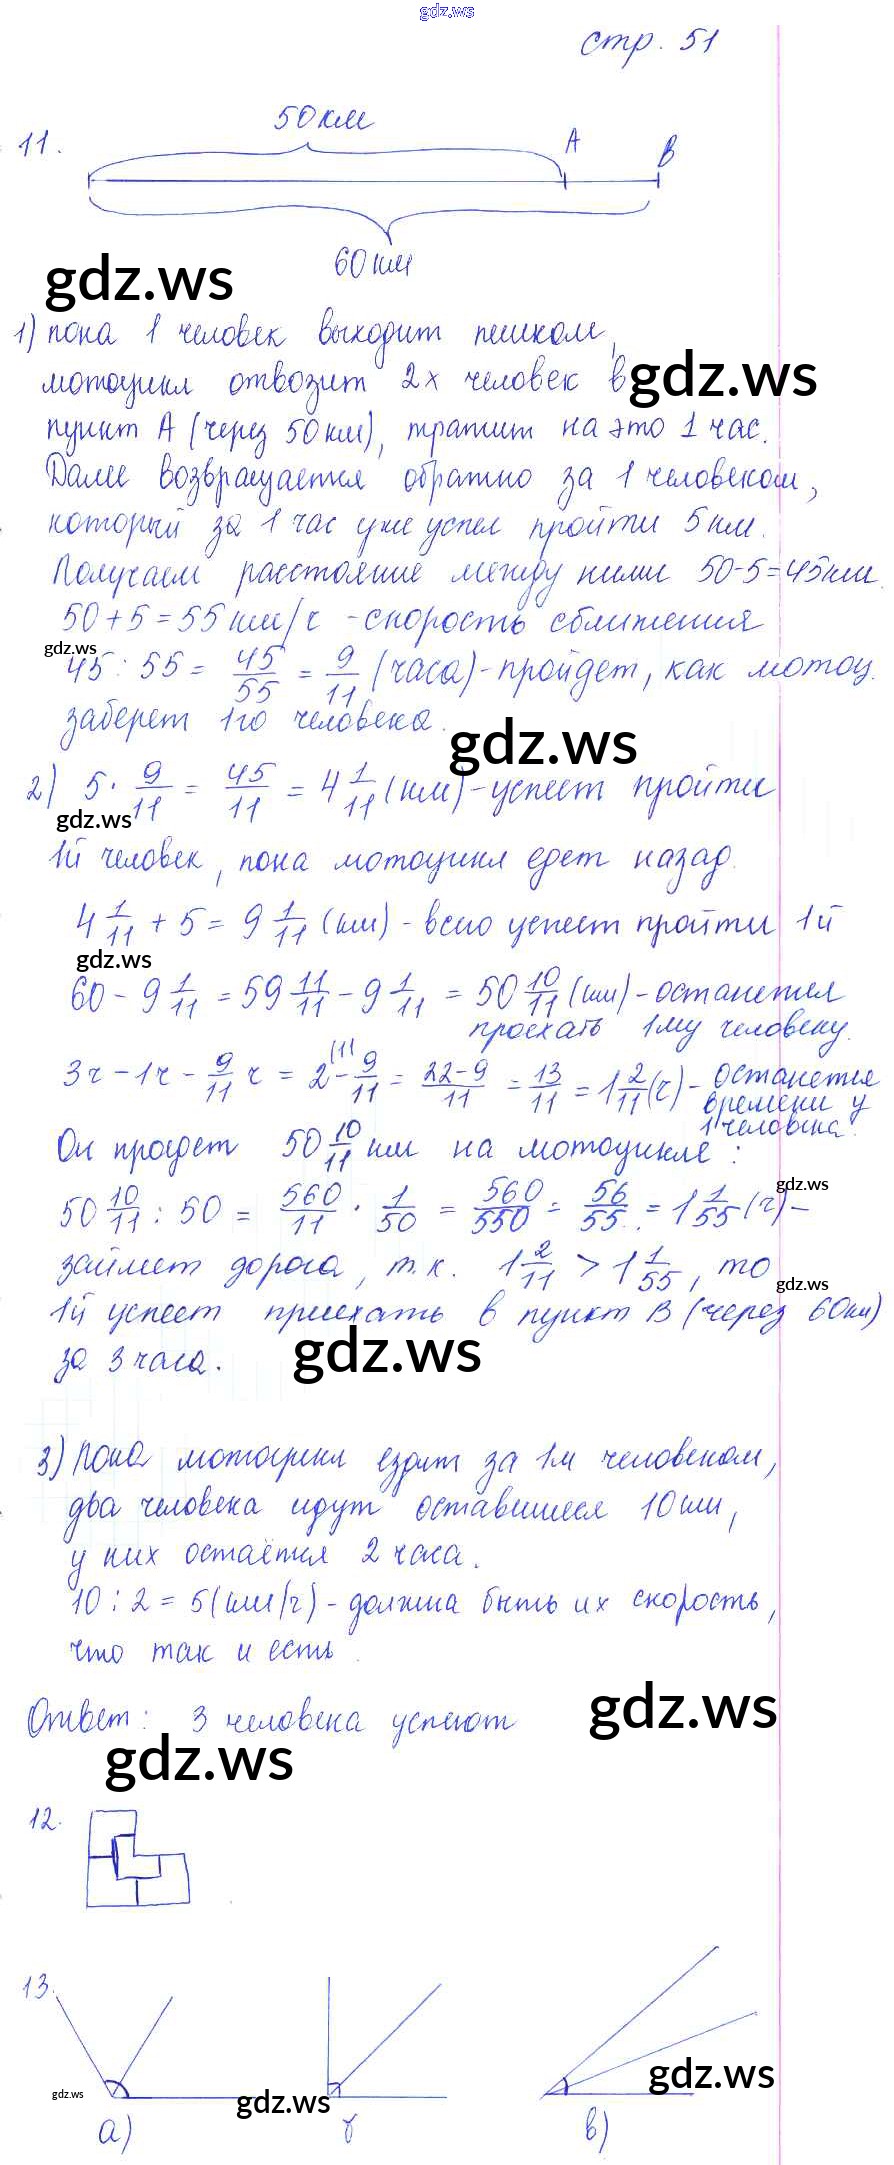 gdz.ws
стр. 51
50 км
11.
А
В
60 км
gdz.ws
1) пока 1 человек выходит пешком,
мотоцикл отвозит 2х человек в
gdz.ws
пункт А (через 50 км), тратит на это 1 час.
Далее возвращается обратно за 1 человеком,
который за 1 час уже успел пройти 5 км.
Получаем расстояние между ними 50-5=45км.
50+5=55 км/ч - скорость сближения
gdz.ws
45 : 55 = 45/55 = 9/11 (часа) - пройдет, как мотоц.
заберет 1го человека.
gdz.ws
2) 5 · 9/11 = 45/11 = 4 1/11 (км) - успеет пройти
gdz.ws
1й человек, пока мотоцикл едет назад.
4 1/11 + 5 = 9 1/11 (км) - всего успеет пройти 1й
gdz.ws
60 - 9 1/11 = 59 11/11 - 9 1/11 = 50 10/11 (км) - останется
проехать 1му человеку.
3ч - 1ч - 9/11 ч = 2 (11 - 9/11 = 22-9/11 = 13/11 = 1 2/11 (ч) - останется
времени у
1 человека.
Он проедет 50 10/11 км на мотоцикле:
gdz.ws
50 10/11 : 50 = 560/11 · 1/50 = 560/550 = 56/55 = 1 1/55 (ч) -
займет дорога, т.к. 1 2/11 > 1 1/55, то
gdz.ws
1й успеет приехать в пункт В (через 60км)
за 3 часа.
gdz.ws
3) Пока мотоцикл ездит за 1м человеком,
два человека идут оставшиеся 10 км,
у них остаётся 2 часа.
10 : 2 = 5 (км/ч) - должна быть их скорость,
что так и есть.
Ответ: 3 человека успеют
gdz.ws
gdz.ws
12.
13.
gdz.ws
gdz.ws
gdz.ws
а)
б
в)